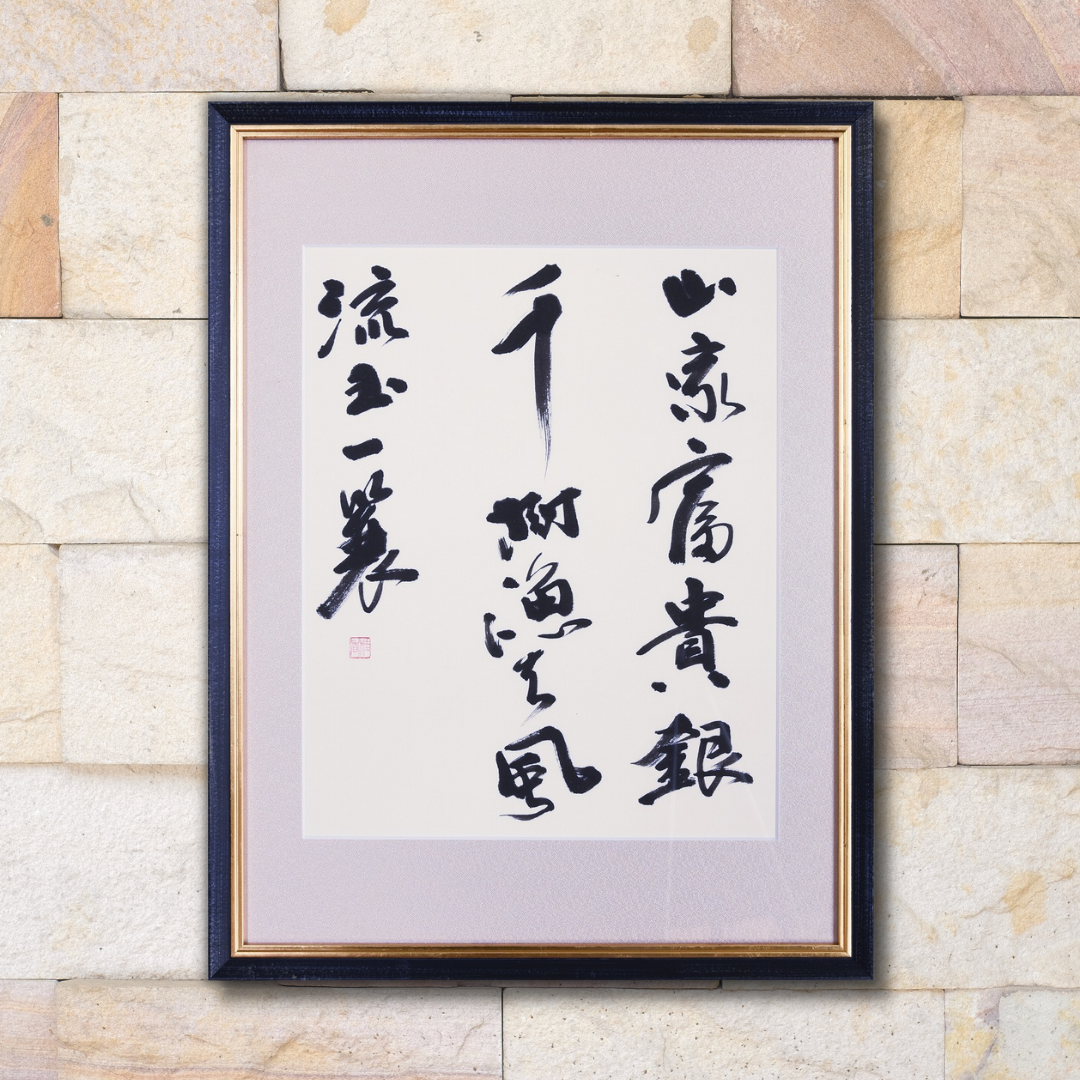 山家富貴銀
千樹漁父風
流玉一蓑